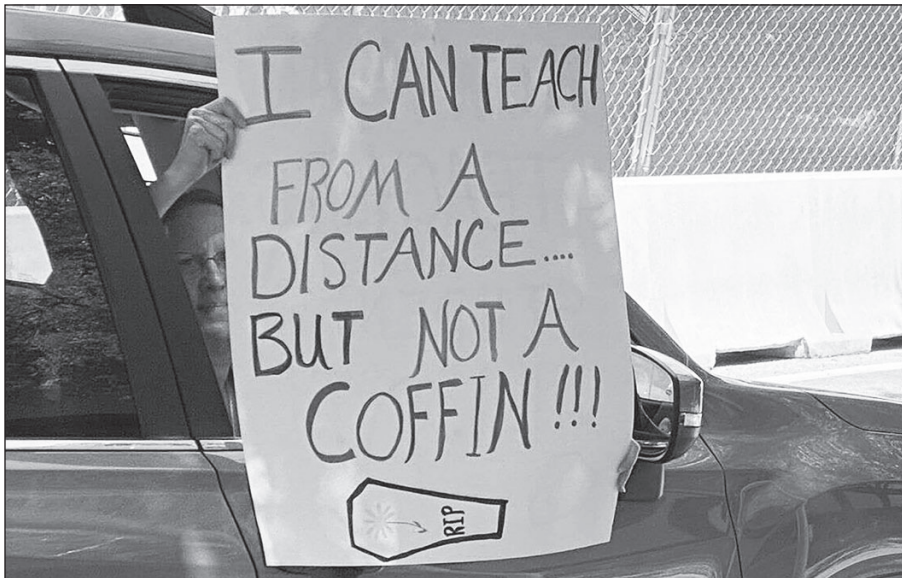 I CAN TEACH
FROM A
DISTANCE....
BUT NOT A
COFFIN!!!
RIP